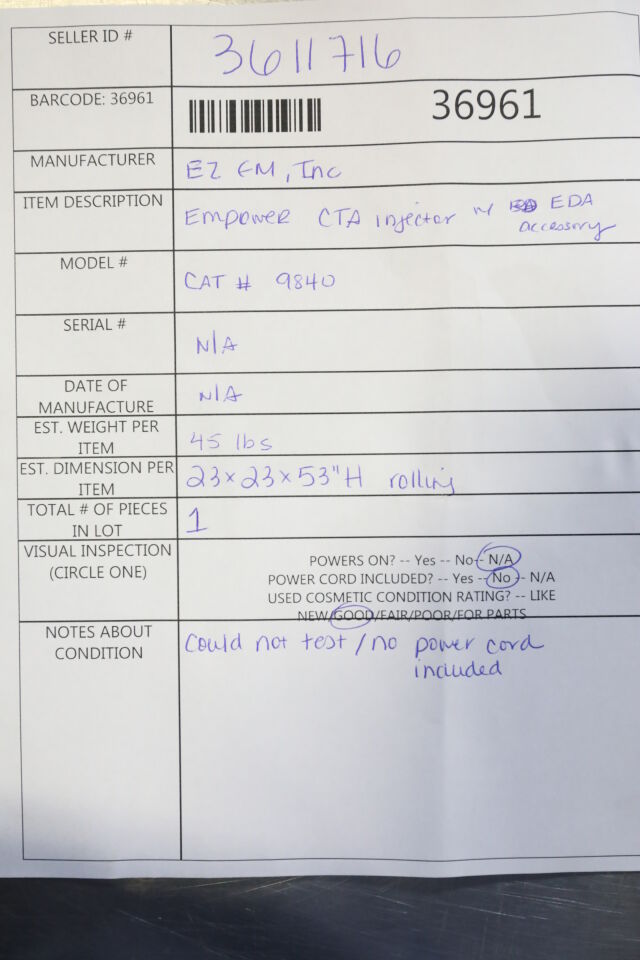 SELLER ID # 3611716
BARCODE: 36961 36961
MANUFACTURER EZ EM, Inc
ITEM DESCRIPTION Empower CTA injector w/ EDA
accessory
MODEL # CAT # 9840
SERIAL # N/A
DATE OF
MANUFACTURE N/A
EST. WEIGHT PER
ITEM 45 lbs
EST. DIMENSION PER
ITEM 23x23x53"H rolling
TOTAL # OF PIECES
IN LOT 1
VISUAL INSPECTION
(CIRCLE ONE)
POWERS ON? -- Yes -- No -- N/A
POWER CORD INCLUDED? -- Yes -- No -- N/A
USED COSMETIC CONDITION RATING? -- LIKE
NEW/GOOD/FAIR/POOR/FOR PARTS
NOTES ABOUT
CONDITION
Could not test / no power cord
included